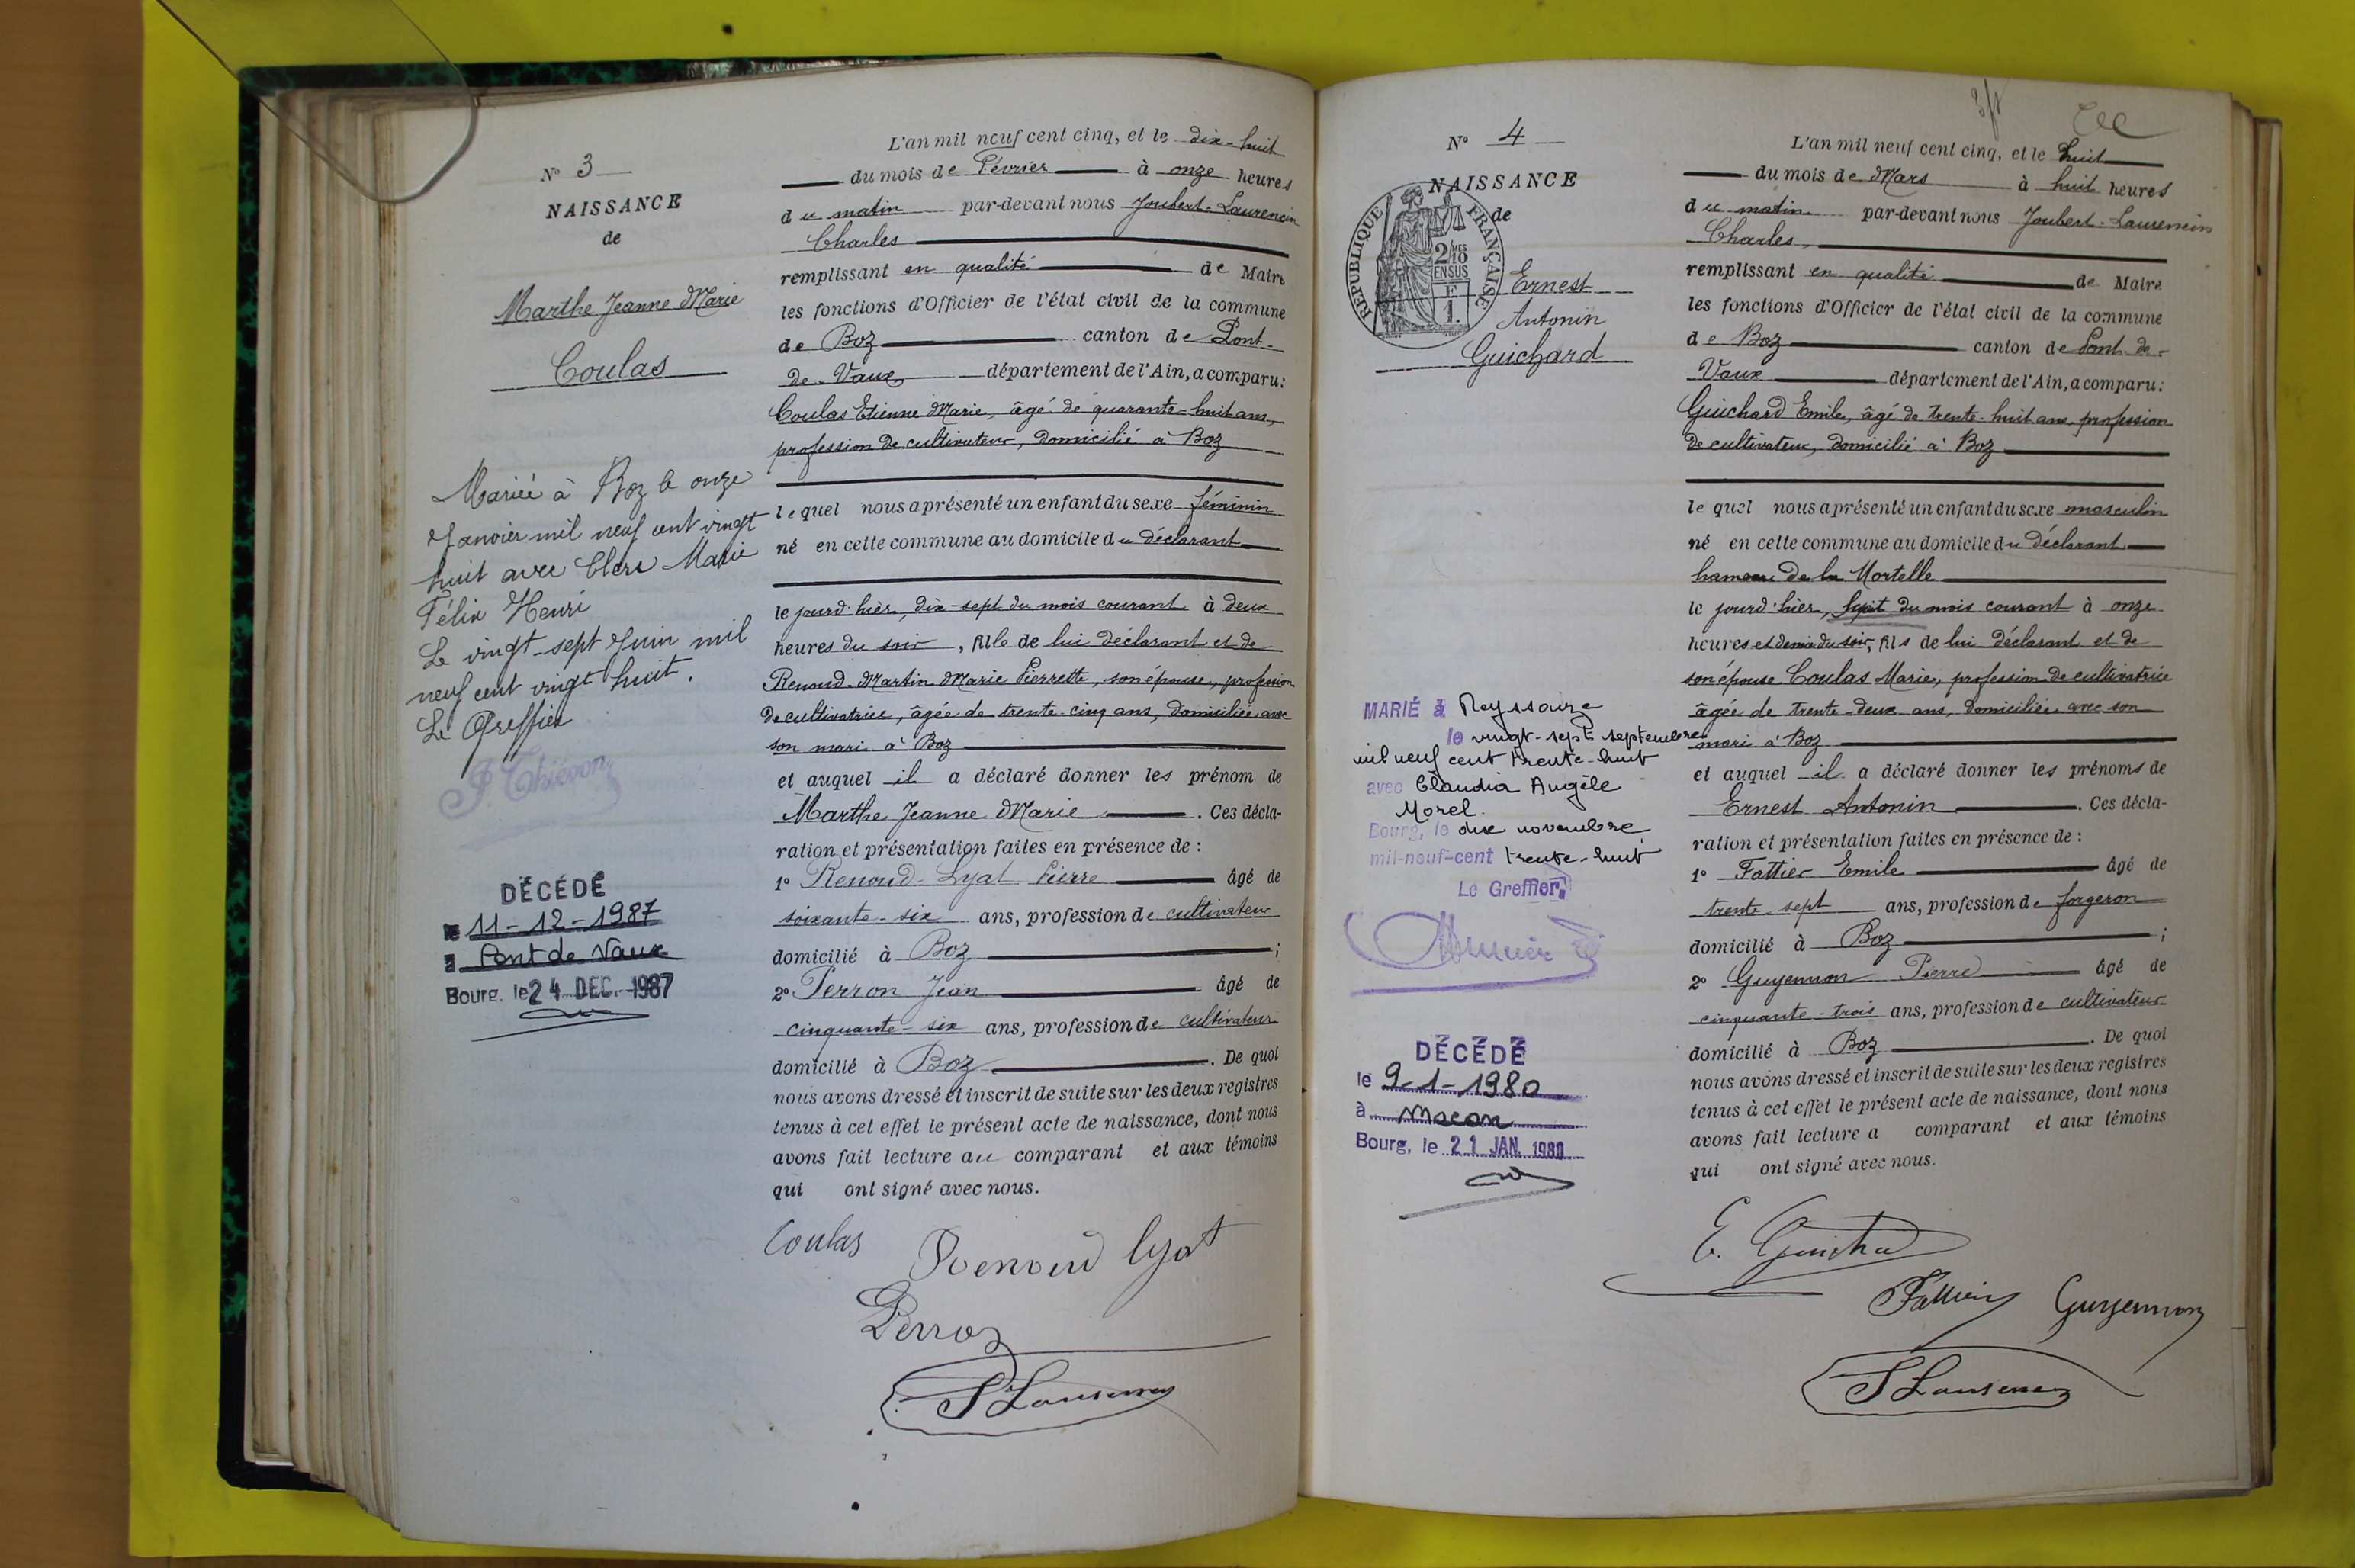 N° 3
NAISSANCE
de
Marthe Jeanne Marie
Coulas
Mariée à Boz le onze
Janvier mil neuf cent vingt
huit avec Clerc Marie
Félix Henri
Le vingt-sept Juin mil
neuf cent vingt huit.
Le Greffier
J. Thiévon
DÉCÉDÉ
le 11-12-1987
à Pont de Vaux
Bourg, le 24 DEC. 1987
L'an mil neuf cent cinq, et le dix-huit
du mois de Février à onze heures
du matin par-devant nous Joubert-Laurencin
Charles
remplissant en qualité de Maire
les fonctions d'Officier de l'état civil de la commune
de Boz canton de Pont-
de-Vaux département de l'Ain, a comparu:
Coulas Etienne Marie, âgé de quarante-huit ans,
profession de cultivateur, domicilié à Boz
lequel nous a présenté un enfant du sexe féminin
né en cette commune au domicile du déclarant
le jourd'hier, dix-sept du mois courant à deux
heures du soir, fille de lui déclarant et de
Renoud-Martin Marie Pierrette, son épouse, profession
de cultivatrice, âgée de trente-cinq ans, domiciliée avec
son mari à Boz
et auquel il a déclaré donner les prénom de
Marthe Jeanne Marie. Ces décla-
ration et présentation faites en présence de:
1° Renoud-Lyat Pierre âgé de
soixante-six ans, profession de cultivateur
domicilié à Boz;
2° Perron Jean âgé de
cinquante-six ans, profession de cultivateur
domicilié à Boz. De quoi
nous avons dressé et inscrit de suite sur les deux registres
tenus à cet effet le présent acte de naissance, dont nous
avons fait lecture au comparant et aux témoins
qui ont signé avec nous.
Coulas Renoud Lyat
Perron
J Laurencin
N° 4
NAISSANCE
de
REPUBLIQUE FRANÇAISE
2/10 MES
EN SUS
F
1.
Ernest
Antonin
Guichard
MARIÉ à Reyssouze
le vingt-sept septembre
mil neuf cent trente-huit
avec Claudia Angèle
Morel.
Bourg, le dix novembre
mil-neuf-cent trente-huit
Le Greffier,
DÉCÉDÉ
le 9-1-1980
à Macon
Bourg, le 21 JAN. 1980
L'an mil neuf cent cinq, et le huit
du mois de Mars à huit heures
du matin par-devant nous Joubert-Laurencin
Charles,
remplissant en qualité de Maire
les fonctions d'Officier de l'état civil de la commune
de Boz canton de Pont-de-
Vaux département de l'Ain, a comparu:
Guichard Emile, âgé de trente-huit ans, profession
de cultivateur, domicilié à Boz
lequel nous a présenté un enfant du sexe masculin
né en cette commune au domicile du déclarant
hameau de la Mortelle
le jourd'hier, du mois courant à onze
heures et demie du soir, fils de lui déclarant et de
son épouse Coulas Marie, profession de cultivatrice
âgée de trente-deux ans, domiciliée avec son
mari à Boz
et auquel il a déclaré donner les prénoms de
Ernest Antonin. Ces décla-
ration et présentation faites en présence de:
1° Fattier Emile âgé de
trente-sept ans, profession de forgeron
domicilié à Boz;
2° Guyennon Pierre âgé de
cinquante-trois ans, profession de cultivateur
domicilié à Boz. De quoi
nous avons dressé et inscrit de suite sur les deux registres
tenus à cet effet le présent acte de naissance, dont nous
avons fait lecture a comparant et aux témoins
qui ont signé avec nous.
E. Guichard
Fattier Guyennon
J Laurencin